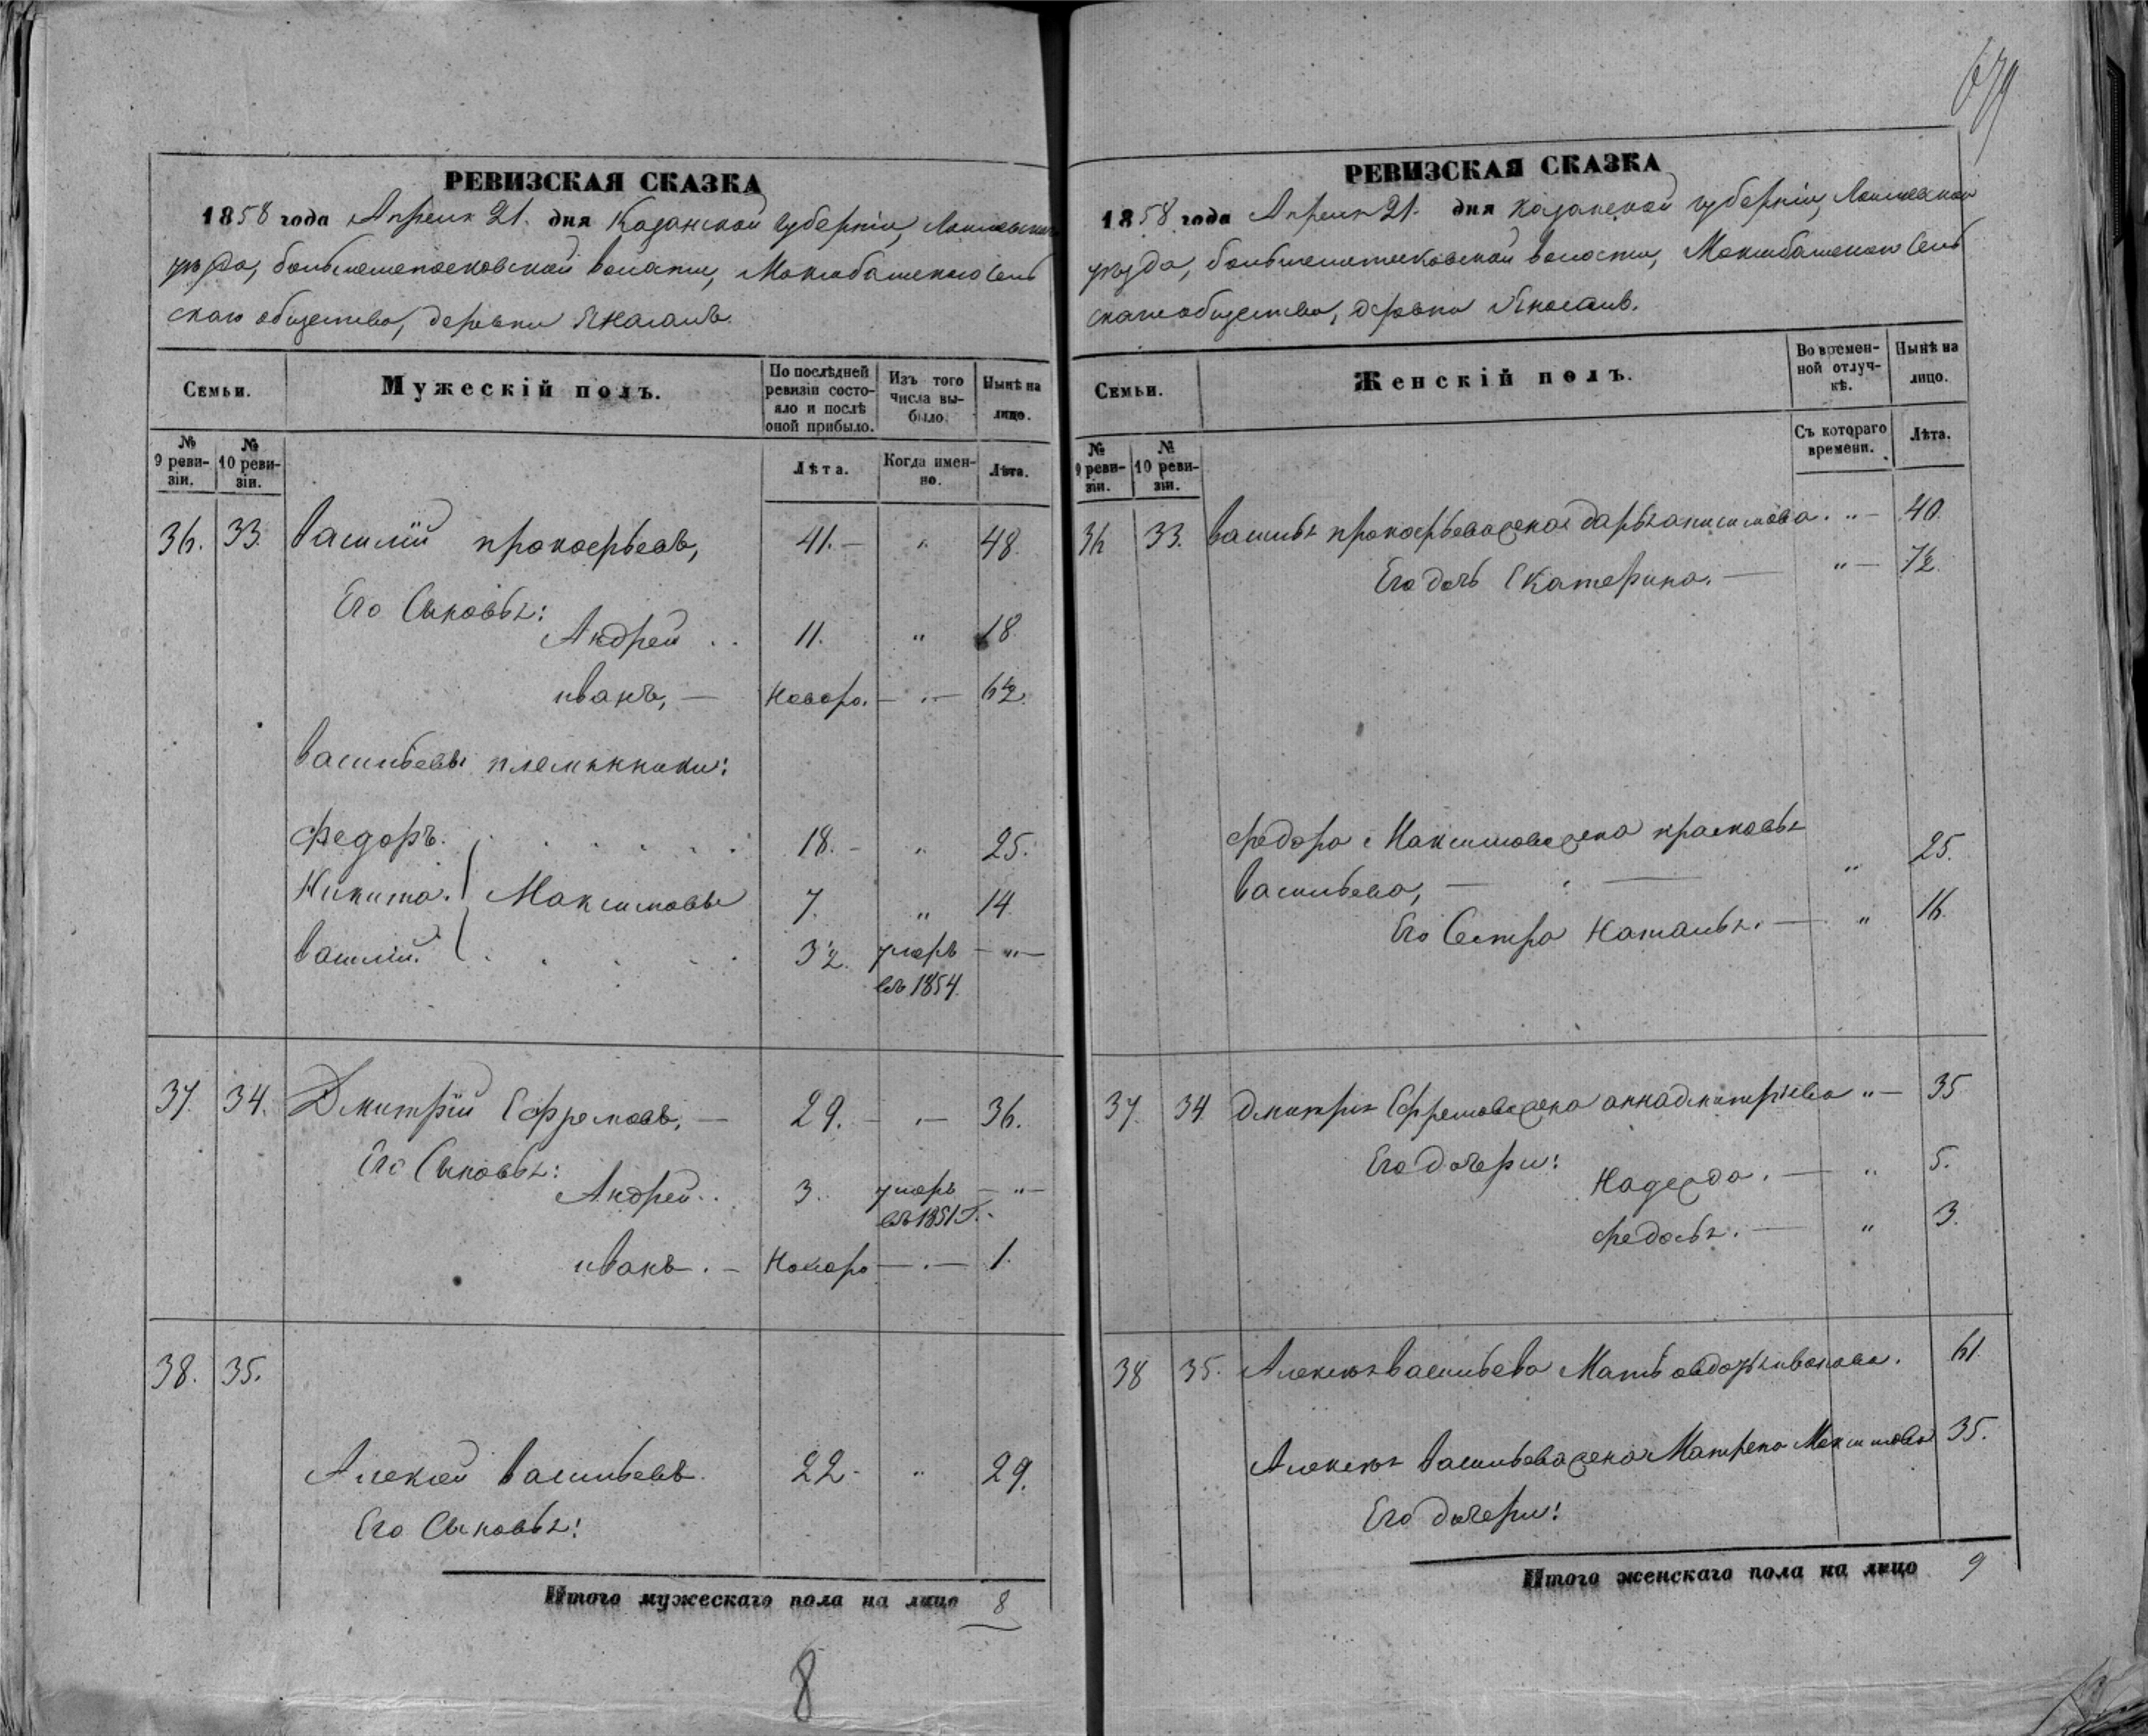 679
РЕВИЗСКАЯ СКАЗКА
1858 года Апреля 21. дня Казанской губернiи, Лаишевскаго
уѣзда, волости, Максабашскаго Сель
скаго общества, деревни Янасалъ.
Семьи.
Мужескiй полъ.
По послѣдней ревизiи состояло и послѣ оной прибыло.
Изъ того числа выбыло.
Нынѣ на лицо.
№ 9 ревизiи.
№ 10 ревизiи.
Лѣта.
Когда именно.
Лѣта.
36. 33. Василiй прокофьевъ, 41. — " 48.
Его Сыновья:
Андрей . . 11. " 18.
иванъ, — Новоро. — " — 6½.
васильевы племянники:
федоръ. 18. — " 25.
Никита. Максимовы 7. " 14
василiй. 3½. умеръ — " —
въ 1854.
37. 34. Дмитрiй Ефремовъ, — 29. — " — 36.
Его Сыновья:
Андрей . . 3. умеръ — " —
въ 1851 г.
иванъ. — Новоро — . — 1.
38. 35.
Алексей васильевъ. 22. " 29.
Его Сыновья:
Итого мужескаго пола на лицо 8
8
РЕВИЗСКАЯ СКАЗКА
1858 года Апреля 21. дня Казанской губернiи, Лаишевскаго
уѣзда, волости, Максабашскаго Сель
скаго общества, деревни Янасалъ.
Семьи.
Женскiй полъ.
Во временной отлучкѣ.
Нынѣ на лицо.
№ 9 ревизiи.
№ 10 ревизiи.
Съ котораго времени.
Лѣта.
36 33. василья прокофьева жена дарья анисимова. " — 40.
Его дочь Екатерина. — " — ½.
федора Максимова жена прасковья
васильева, — " 25.
Его Сестра Наталья. — " 16.
37. 34 дмитрия Ефремова жена анна дмитрiева " — 35
Его дочери:
Надежда. — " 5.
федосья. — " 3.
38 35. Алексея васильева Мать авдотья иванова. 61.
Алексея васильева жена Матрена Максимова 35.
Его дочери:
Итого женскаго пола на лицо 9